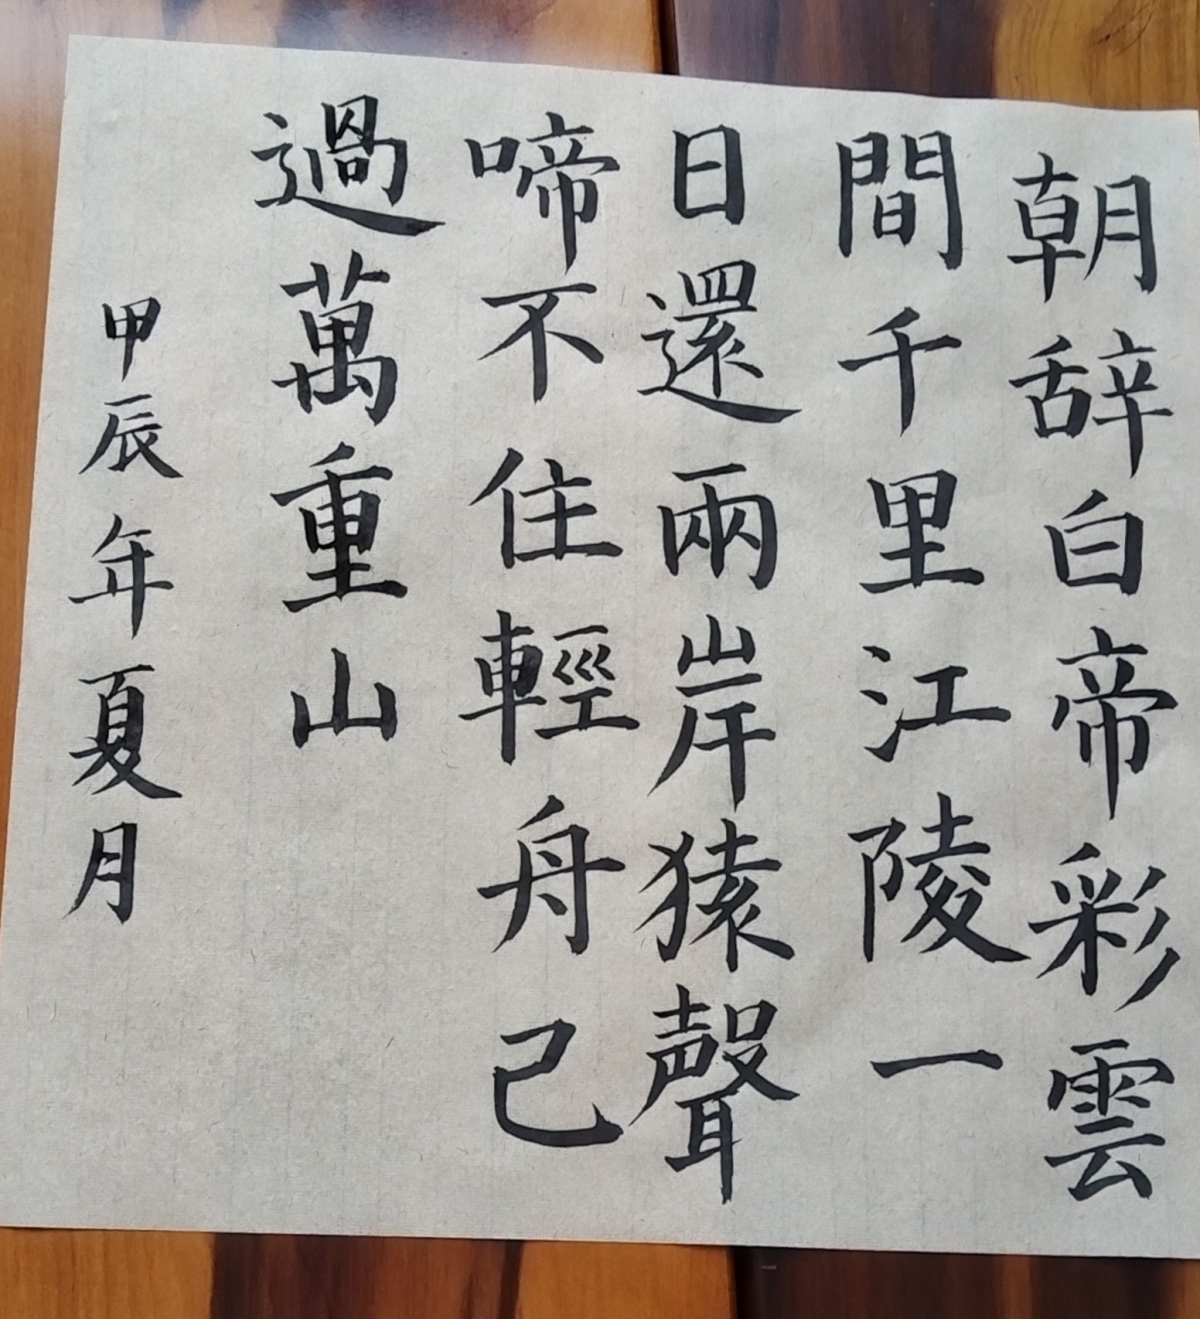 朝辞白帝彩雲
間千里江陵一
日還兩岸猿聲
啼不住輕舟己
過萬重山
甲辰年夏月